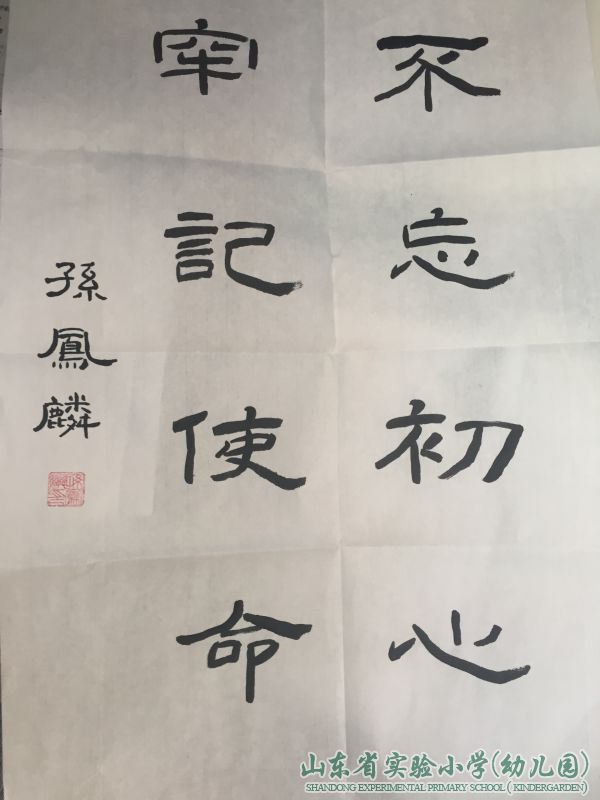 不忘初心
牢記使命
孫鳳麟
山东省实验小学(幼儿园)
SHANDONG EXPERIMENTAL PRIMARY SCHOOL ( KINDERGARDEN)